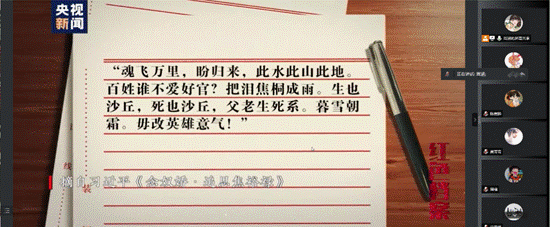 央视
新闻
“魂飞万里，盼归来，此水此山此地。
百姓谁不爱好官？把泪焦桐成雨。生也
沙丘，死也沙丘，父老生死系。暮雪朝
霜。毋改英雄意气！”
摘自习近平《念奴娇·追思焦裕禄》
红色档案